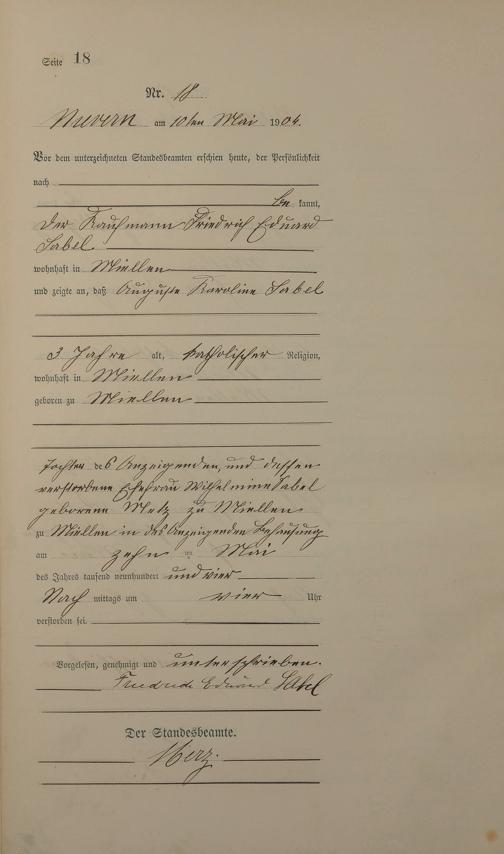 Seite 18
Nr. 18
Nievern am 10ten Mai 1904.
Vor dem unterzeichneten Standesbeamten erschien heute, der Persönlichkeit
nach
be kannt,
der Kaufmann Friedrich Eduard
Sabel
wohnhaft in Miellen
und zeigte an, daß Auguste Karoline Sabel
3 Jahre alt, katholischer Religion,
wohnhaft in Miellen
geboren zu Miellen
Tochter des Anzeigenden, und dessen
verstorbene Ehefrau Wilhelmine Sabel
geborene Metz zu Miellen
zu Miellen in des Anzeigenden Behausung
am zehn ten Mai
des Jahres tausend neunhundert und vier
Nach mittags um vier Uhr
verstorben sei.
Vorgelesen, genehmigt und unterschrieben.
Friedrich Eduard Sabel
Der Standesbeamte.
Merz.